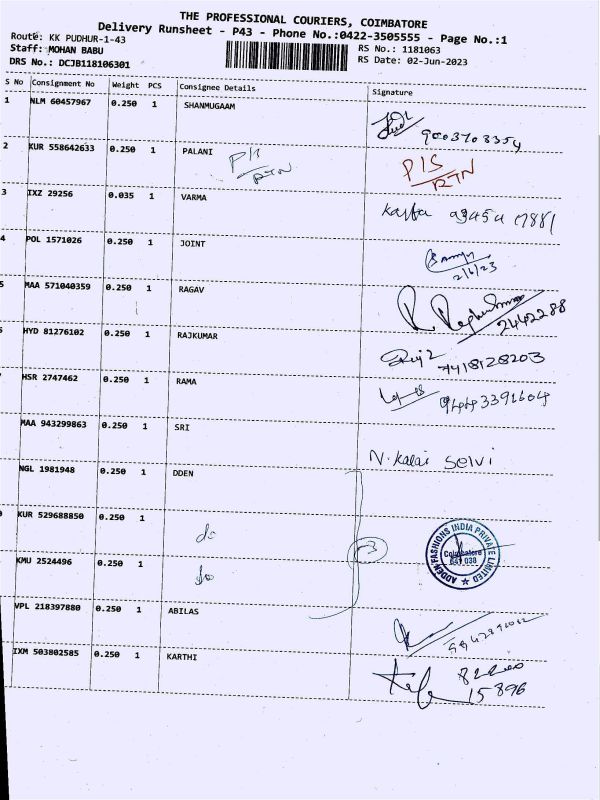 THE PROFESSIONAL COURIERS, COIMBATORE
Delivery Runsheet - P43 - Phone No.:0422-3505555 - Page No.:1
Route: KK PUDHUR-1-43
Staff: MOHAN BABU
RS No.: 1181063
DRS No.: DCJB118106301
RS Date: 02-Jun-2023
S No Consignment No Weight PCS Consignee Details Signature
1 NLM 60457967 0.250 1 SHANMUGAAM
9003708354
2 KUR 558642633 0.250 1 PALANI P/S RTN P/S RTN
3 IXZ 29256 0.035 1 VARMA
4 POL 1571026 0.250 1 JOINT
2/6/23
5 MAA 571040359 0.250 1 RAGAV
2442288
HYD 81276102 0.250 1 RAJKUMAR
7418128203
HSR 2747462 0.250 1 RAMA
MAA 943299863 0.250 1 SRI
N. Kalai Selvi
NGL 1981948 0.250 1 DDEN
KUR 529688850 0.250 1 do
3
ADDEN FASHIONS INDIA PRIVATE LIMITED
Coimbatore
641 038
KMU 2524496 0.250 1 do
VPL 218397880 0.250 1 ABILAS
IXM 503802585 0.250 1 KARTHI
15896